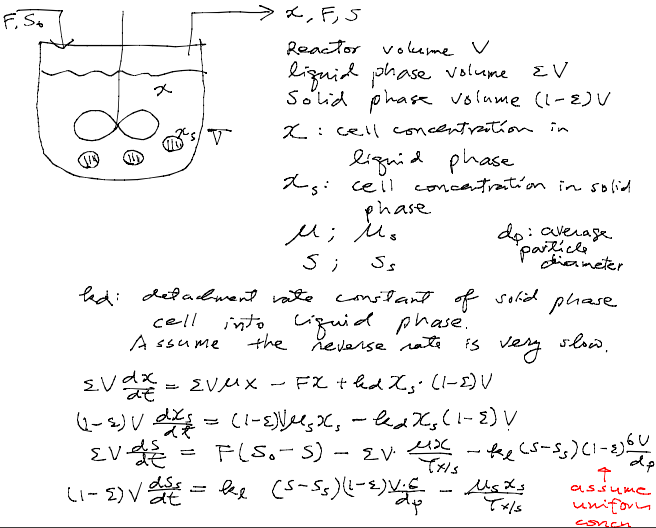 F, S₀
x, F, S
Reactor volume V
liquid phase volume εV
Solid phase volume (1-ε)V
x
xₛ V
x : cell concentration in
liquid phase
xₛ : cell concentration in solid
phase
μ ; μₛ
S ; Sₛ
dₚ : average
particle
diameter
kd : detachment rate constant of solid phase
cell into liquid phase.
Assume the reverse rate is very slow.
εV dx/dt = εVμx - Fx + kd xₛ·(1-ε)V
(1-ε)V dxₛ/dt = (1-ε)Vμₛxₛ - kd xₛ(1-ε)V
εV ds/dt = F(S₀-S) - εV· μx/Yx/s - kℓ(S-Sₛ)(1-ε) 6V/dₚ
(1-ε)V dSₛ/dt = kℓ (S-Sₛ)(1-ε) V·6/dₚ - μₛxₛ/Yx/s
↑
assume
uniform
concn